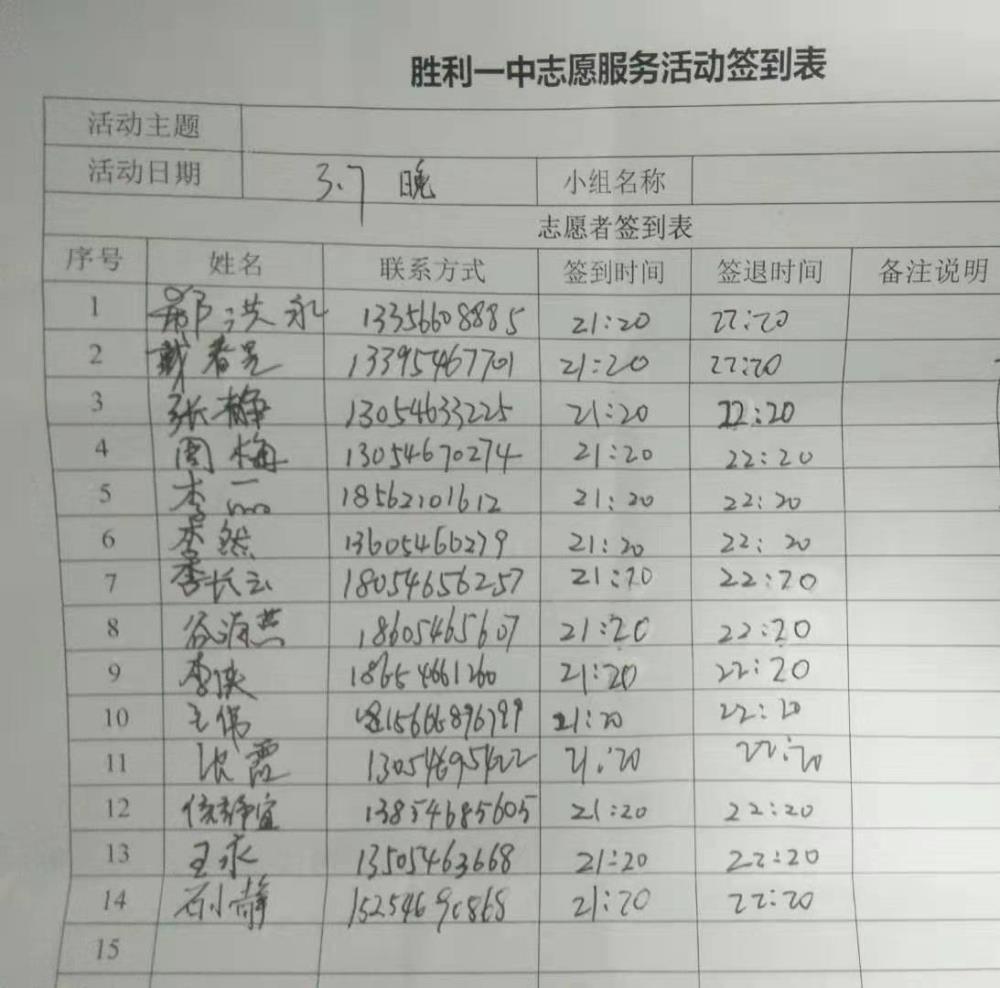 胜利一中志愿服务活动签到表
活动主题
活动日期 3.7 晚 小组名称
志愿者签到表
序号 姓名 联系方式 签到时间 签退时间 备注说明
1 洪永 13356608885 21:20 22:20
2 戴春 13395467701 21:20 22:20
3 张静 13054633225 21:20 22:20
4 周梅 13054670274 21:20 22:20
5 李 18562101612 21:20 22:20
6 李然 13605466279 21:20 22:20
7 李长云 18054656257 21:20 22:20
8 谷海燕 18605465607 21:20 22:20
9 李侠 18654661260 21:20 22:20
10 王伟 21:20 22:20
11 张霞 21:20 22:20
12 静宜 13854685605 21:20 22:20
13 王永 13505463668 21:20 22:20
14 静 15254690868 21:20 22:20
15